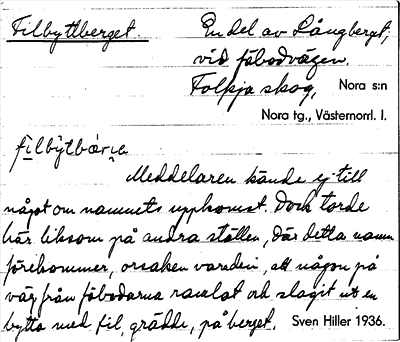 Filbyttberget.
En del av Långberget,
vid fäbodvägen.
Folkja skog, Nora s:n
Nora tg., Västernorrl. l.
filbytbärje
Meddelaren kände ej till
något om namnets uppkomst. Dock torde
här liksom på andra ställen, där detta namn
förekommer, orsaken varadëri, att någon på
väg från fäbodarna ramlat och slagit ut en
bytta med fil, grädde, på berget. Sven Hiller 1936.